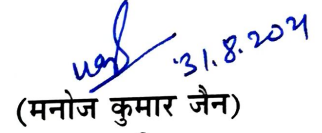 31.8.2021
(मनोज कुमार जैन)